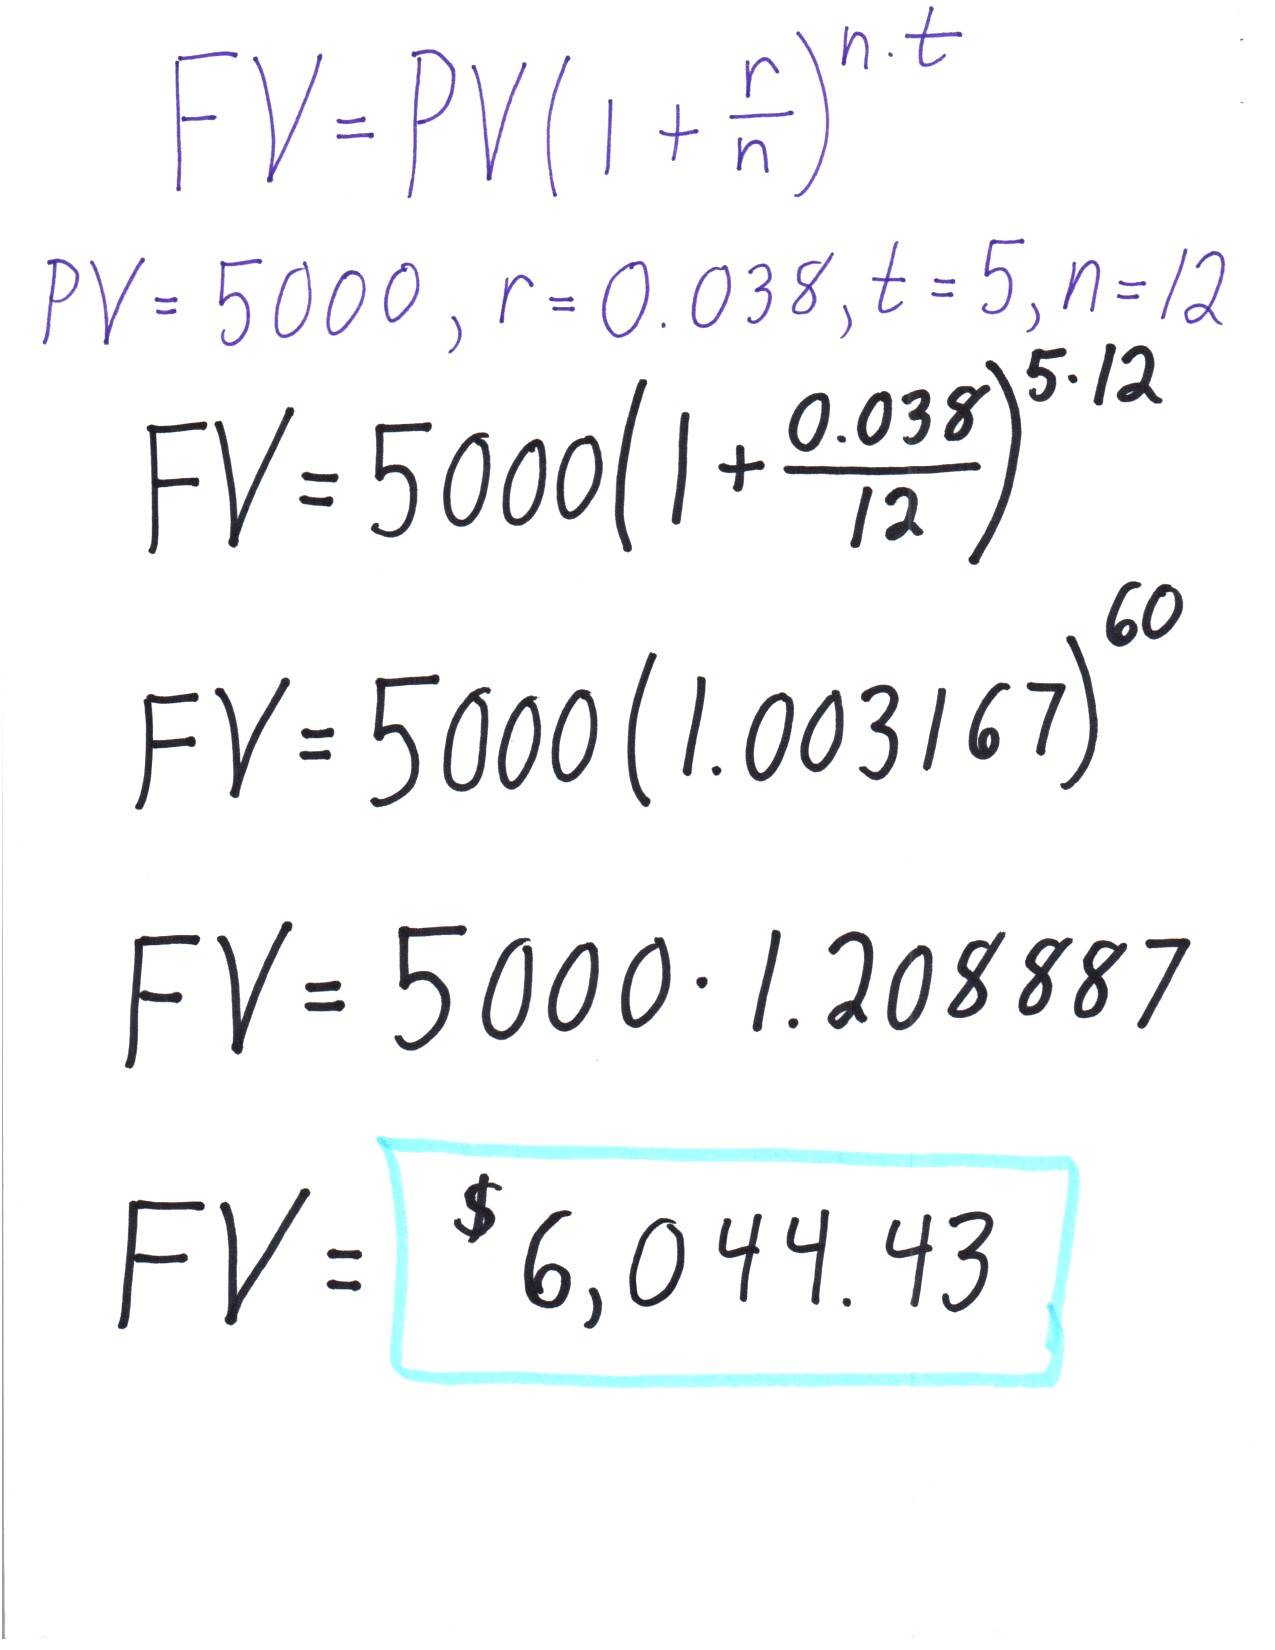 FV = PV(1 + r/n)^n·t
PV = 5000, r = 0.038, t = 5, n = 12
FV = 5000(1 + 0.038/12)^5·12
FV = 5000(1.003167)^60
FV = 5000 · 1.208887
FV = $6,044.43